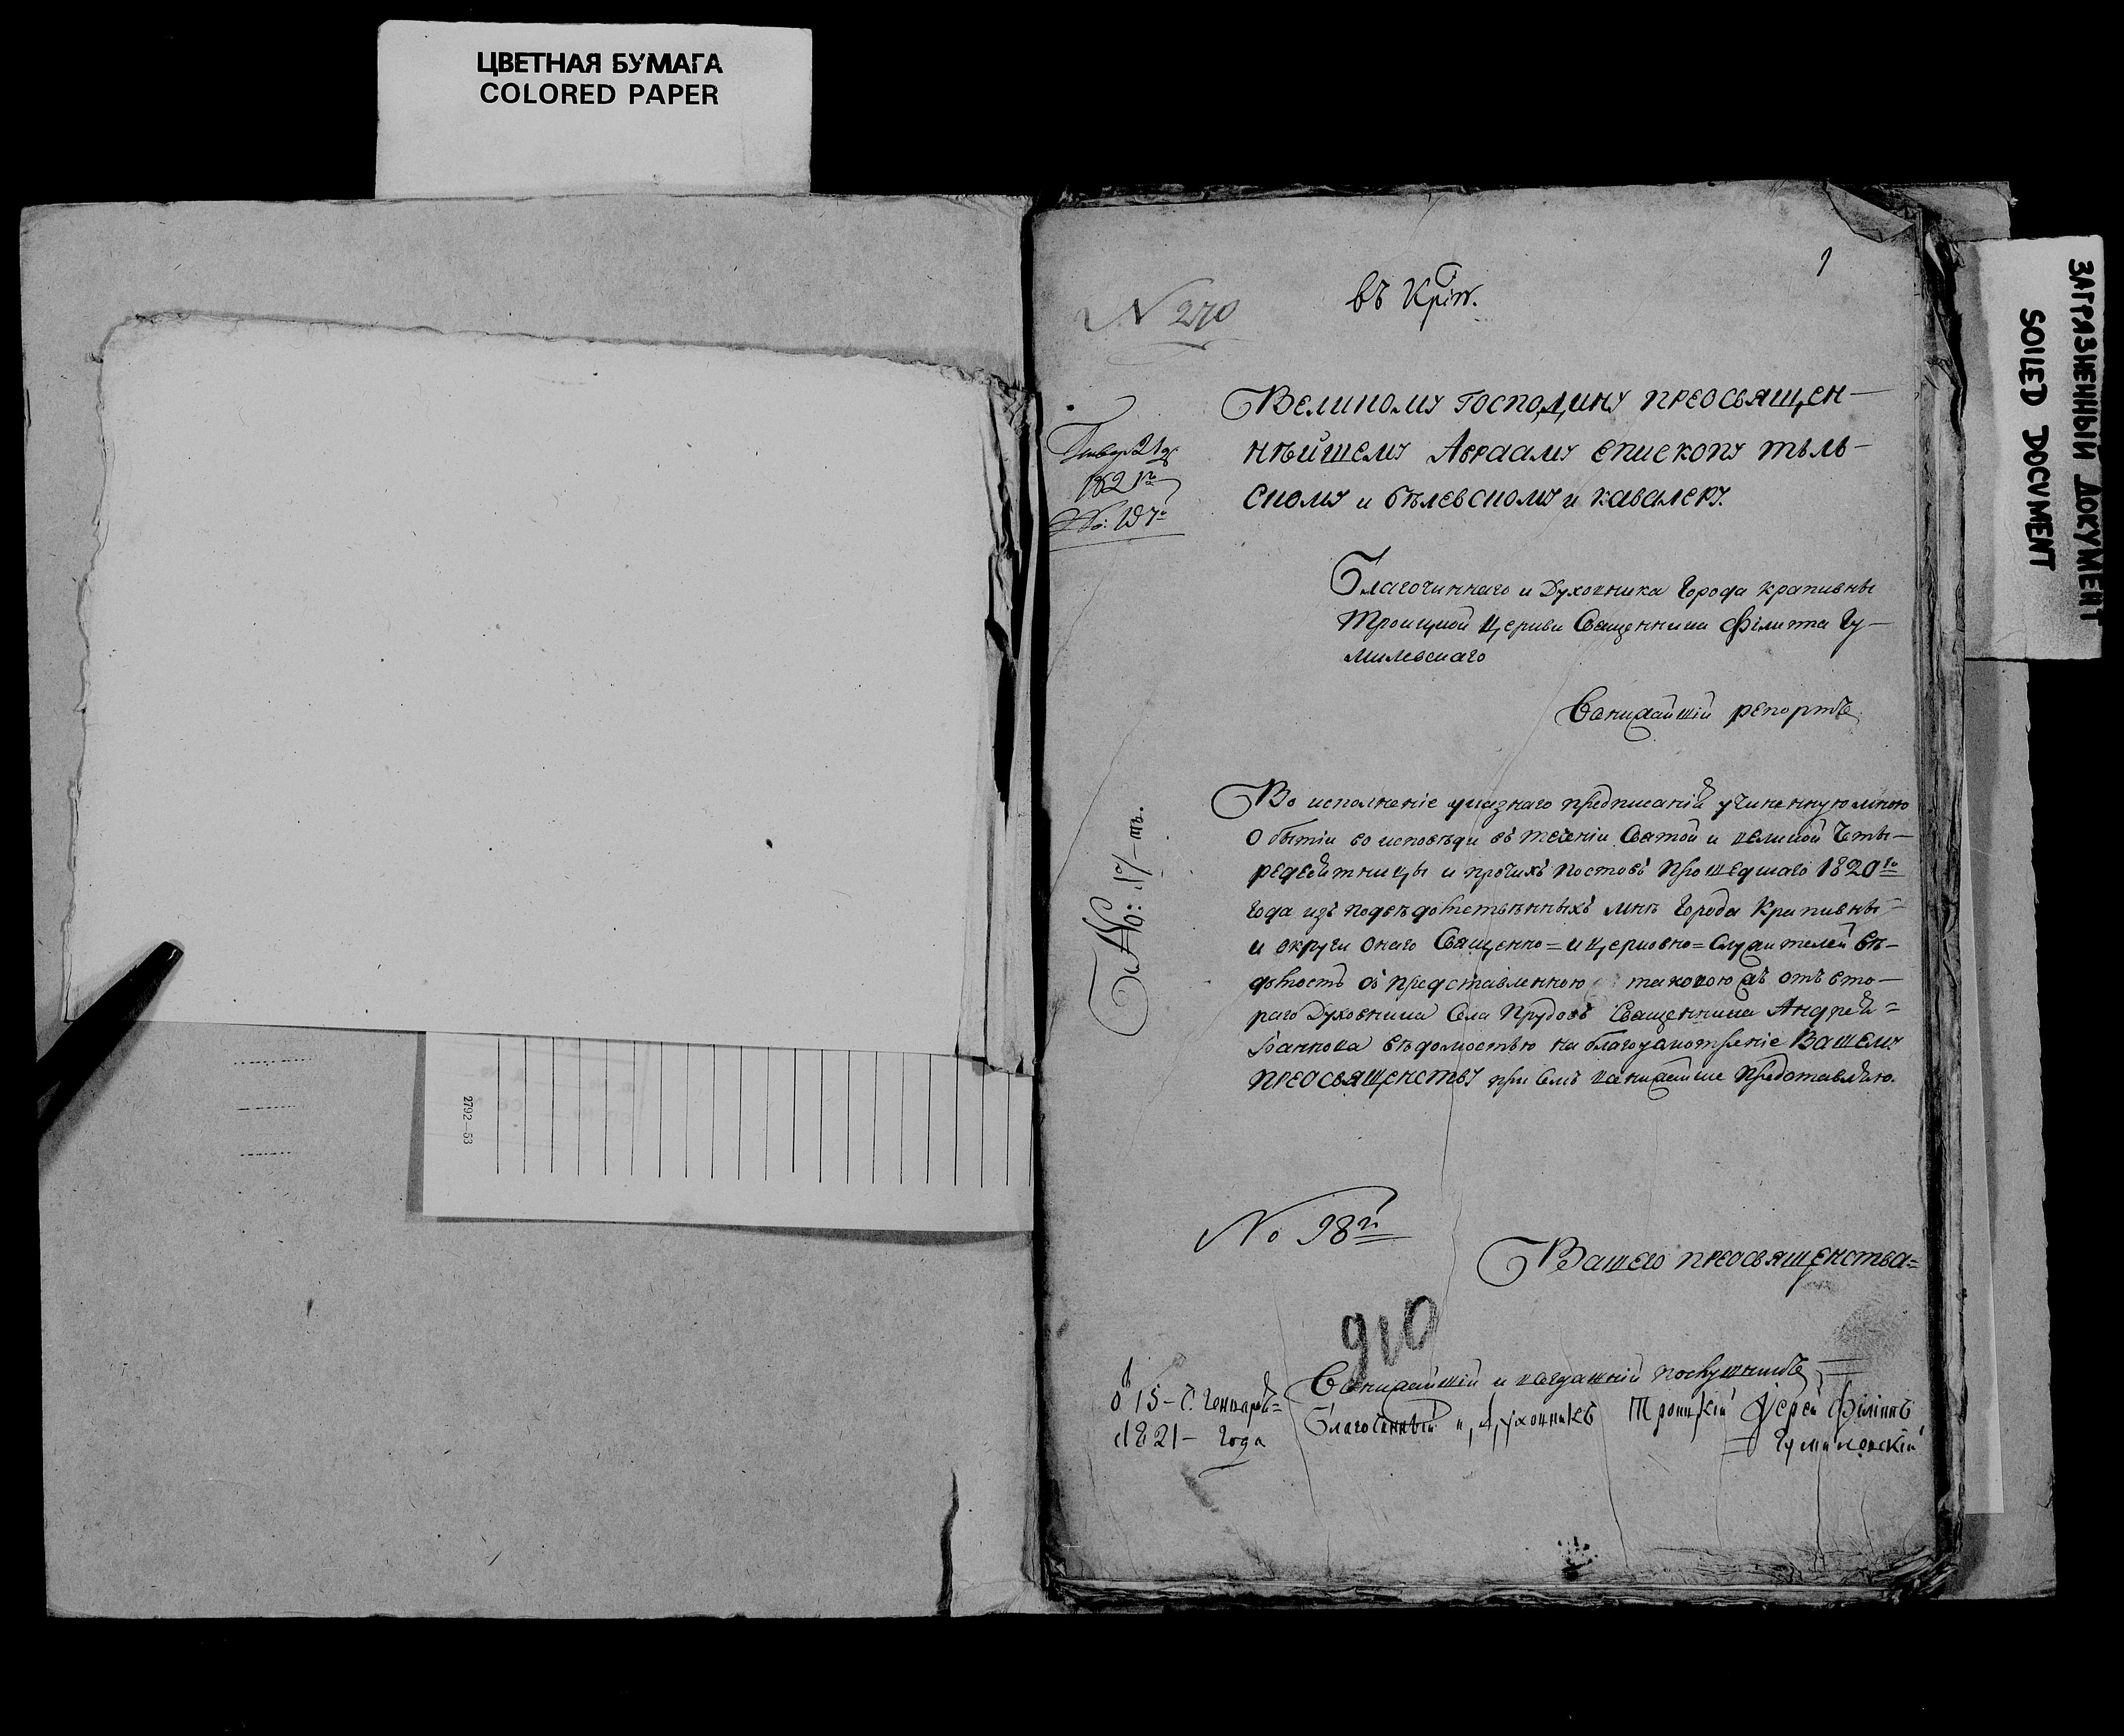 ЦВЕТНАЯ БУМАГА
COLORED PAPER
ЗАГРЯЗНЕННЫЙ ДОКУМЕНТ
SOILED DOCUMENT
1
N 270
въ
Великому господину преосвящен-
нѣйшему Аврааму епископу туль-
скому и бѣлевскому и кавалеру.
21
1821го
No:
Благочиннаго и Духовника Города Крапивны
Троицкой Церкви Священника Филиппа Гу-
милевскаго
Всенижайшій репортъ
Во исполненіе указнаго предписанія учиненную мною
О бытіи во исповѣди въ теченіи Святой и великой Четы-
редесятницы и прочихъ постовъ прошедшаго 1820го
года изъ подвѣдомственныхъ мнѣ Города Крапивны
и округи онаго Священно= и церковно= Служителей вѣ-
домость съ представленною таковою жъ отъ вто-
раго Духовника Села Прудовъ Священника Андрея=
Іоаннова вѣдомостью на благоусмотреніе Вашему
преосвященству при семъ всенижайше представляю.
No 98й
Вашего преосвященства=
910
Всенижайшій и всегдашній послушникъ
15- Генваря=
1821- Года
Благочинный и Духовникъ Троицкій Іерей Филиппъ
= Гумилевскій
2792-53